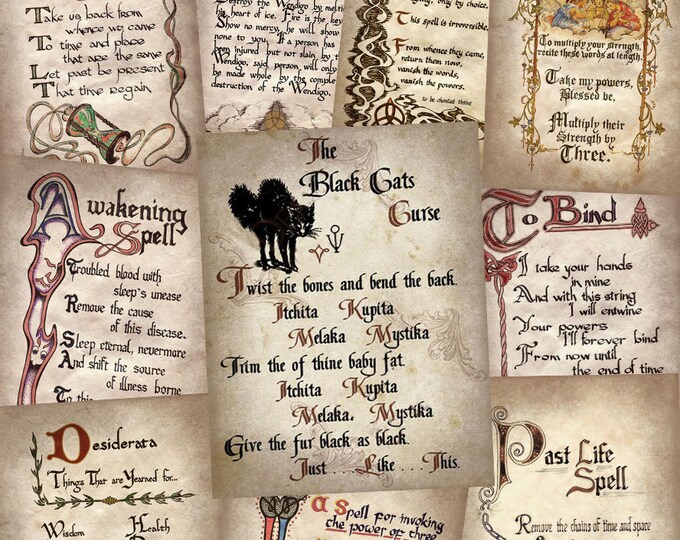 Take us back from
whence we came
To time and place
that are the same
Let past be present
That time regain
Destroy the Wendigo by melting
the heart of ice. Fire is the key
Show no mercy, he will show
none to you. If a person has
been injured but not slain by the
Wendigo, said person will only
be made whole by the complete
destruction of the Wendigo.
only by choice.
This spell is irreversible.
From whence they came,
return them now,
vanish the words,
vanish the powers.
to be chanted thrice
To multiply your strength,
recite these words at length.
Take my powers,
Blessed be,
Multiply their
Strength by
Three.
Awakening
Spell
Troubled blood with
sleep's unease
Remove the cause
of this disease.
Sleep eternal, nevermore
And shift the source
of illness borne
To this
The
Black Cats
Curse
Twist the bones and bend the back.
Itchita Kupita
Melaka Mystika
Trim the of thine baby fat.
Itchita Kupita
Melaka. Mystika
Give the fur black as black.
Just...Like...This.
To Bind
I take your hands
in mine
And with this string
I will entwine
Your powers
I'll forever bind
From now until
the end of time
Desiderata
Things That are Yearned for...
Wisdom Health
a spell for invoking
the power of three
Past Life
Spell
Remove the chains of time and space